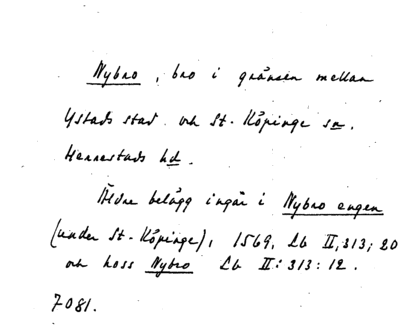 Nybro, bro i gränsen mellan
Ystads stad och St. Köpinge sn.
Herrestads hd.
Äldre belägg ingår i Nybro engen
(under St. Köpinge), 1569, Lb II, 313; 20
och hoss Nybro Lb II: 313: 12.
7081.